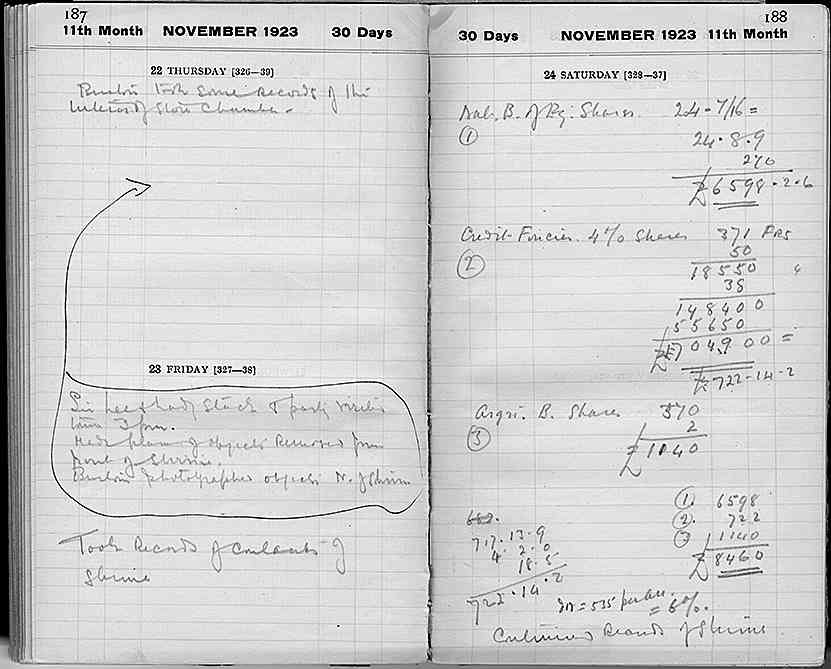 187
11th Month NOVEMBER 1923 30 Days
22 THURSDAY [326—39]
Burton took some records of the
interior of store chamber.
23 FRIDAY [327—38]
Sir Lee & Lady Stack & party visited
tomb 3 pm.
Made plan of objects removed from
front of Shrine.
Burton photographed objects N. of Shrine
Took Records of Contents of
Shrine
188
30 Days NOVEMBER 1923 11th Month
24 SATURDAY [328—37]
Nat. B. of Eg. Shares. 24-7/16 =
① 24.8.9
270
£6598.2.6
Credit Foncier. 4% Shares 371 FRS
② 50
18550
38
148400
55650
704900 =
£722-14-2
Agri. B. Shares 570
③ 2
£1140
① 6598
② 722
③ 1140
£8460
717.13.9
4.2.0
18.5
722.14.2
= 535 per
= 6%.
Continued Records of Shrine